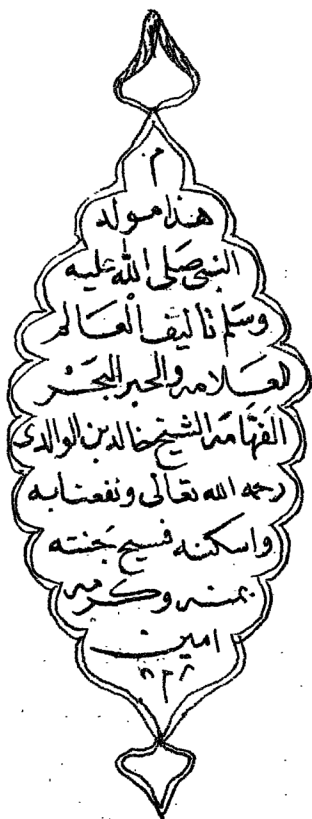 م
هذا مولد
النبى صلى الله عليه
وسلم تأليف العالم
لعلامه والحبر البحر
الفهامه الشيخ خالد بن الوالدى
رحمه الله تعالى ونفعنا به
واسكنه فسيح جنته
بمنه وكرمه
امين